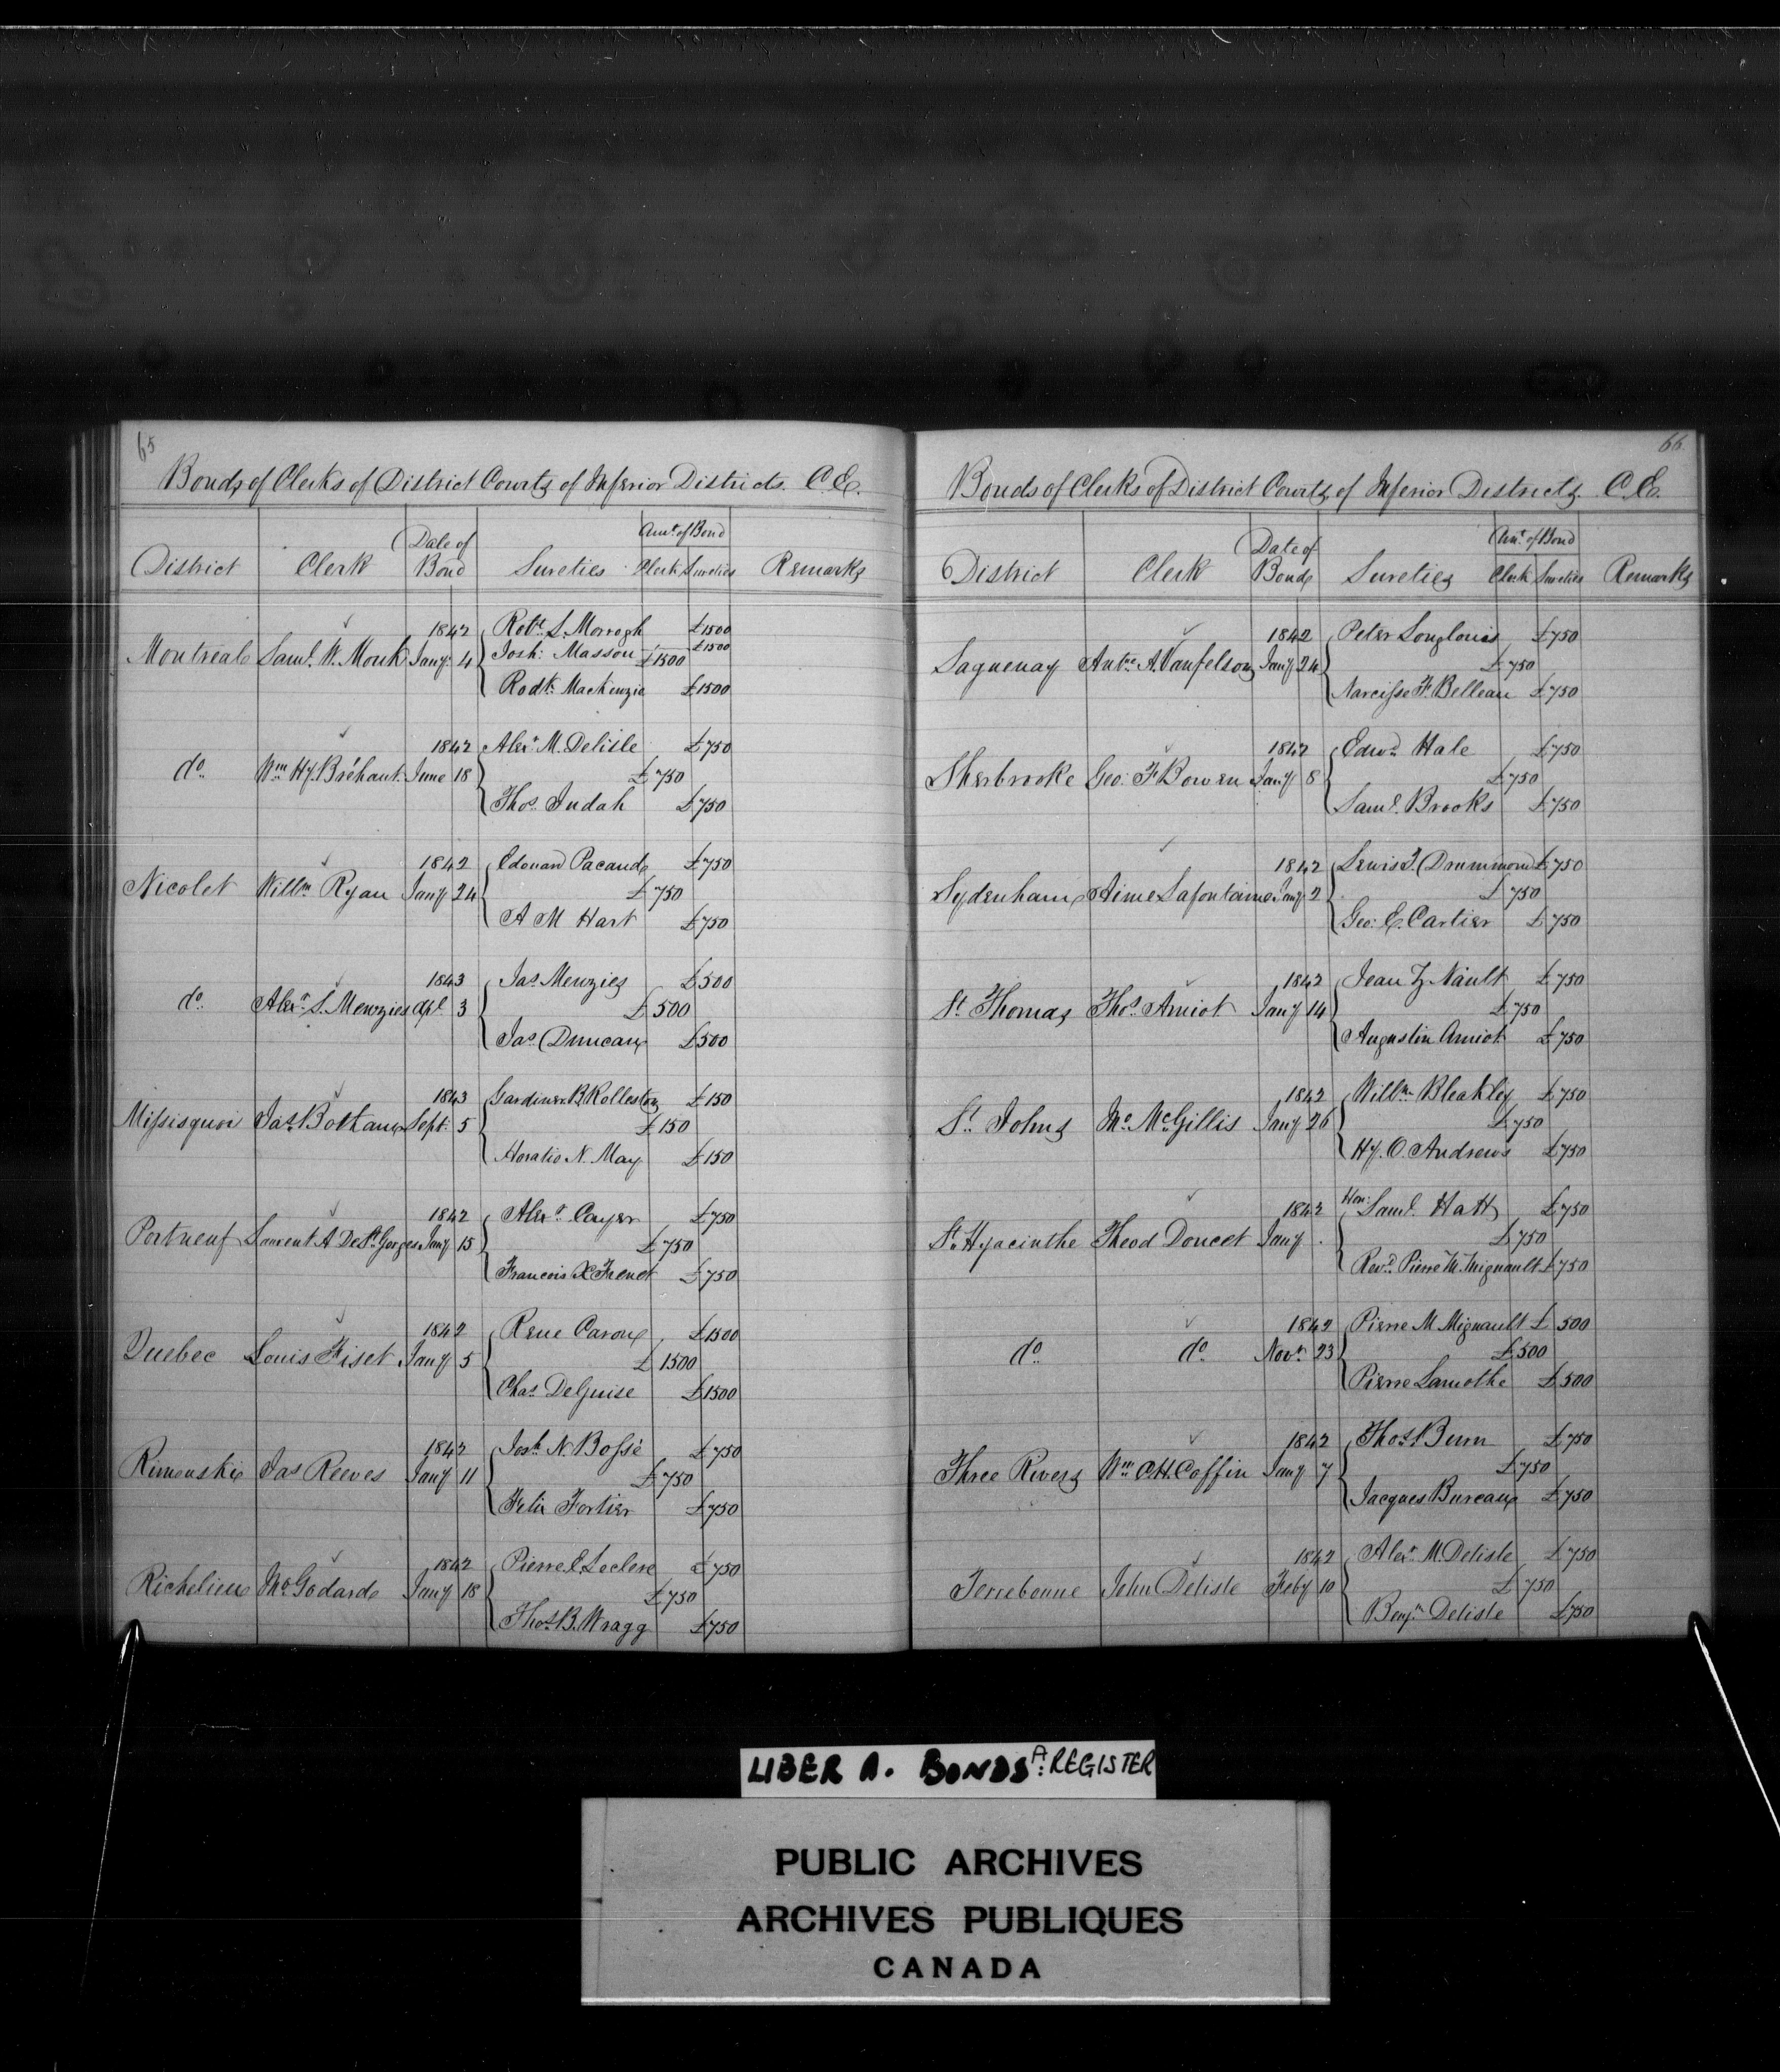 65
Bonds of Clerks of District Courts of Inferior Districts. C.E.
District Clerk Date of Bond Sureties Amt. of Bond Clerk Sureties Remarks
1842 Robt. S. Morrogh £1500
Montreal Saml. W. Monk Jany. 4 Josh: Masson £1500 £1500
Rodk. Mackenzie £1500
1842 Alexr. M. Delisle £750
do. Wm Hy. Bréhaut. June 18 £750
Thos. Judah £750
1842 Edouard Pacaud £750
Nicolet Willm Ryan Jany 24 £750
A M Hart £750
1843 Jas. Menzies £500
do. Alexr. S. Menzies Apl. 3 £500
Jas. Duncan £500
1843 Gardiner B. Rolleston £150
Missisquoi Jas. Botham Sept. 5 £150
Horatio N. May £150
1842 Alexr. Cayer £750
Portneuf Laurent A De St. Gorges Jany 15 £750
Francois X Frenet £750
1842 Rene Caron £1500
Quebec Louis Fiset Jany 5 £1500
Chas. DeGuise £1500
1842 Josh. N. Bossé £750
Rimouski Jas Reeves Jany 11 £750
Felix Fortier £750
1842 Pierre E. Leclere £750
Richelieu Jno. Godard Jany 18 £750
Thos. B. Wragg £750
66
Bonds of Clerks of District Courts of Inferior Districts C.E.
District Clerk Date of Bond Sureties Amt. of Bond Clerk Sureties Remarks
1842 Peter Longlouis £750
Saguenay Antne. A. Vanfelson Jany 24 £750
Narcisse F. Belleau £750
1842 Edwd. Hale £750
Sherbrooke Geo: F Bowen Jany 8 £750
Saml. Brooks £750
1842 Lewis T. Drummond £750
Sydenham Aime Lafontaine Jany 2 £750
Geo: E. Cartier £750
1842 Jean Z. Nault £750
St. Thomas Thos. Amiot Jany 14 £750
Augustin Amiot £750
1842 Willm. Bleakley £750
St. Johns Jno. McGillis Jany 26 £750
Hy. O. Andrews £750
1842 Hon: Saml. Hatt £750
St. Hyacinthe Theod Doucet Jany . £750
Revd. Pierre M. Mignault £750
1842 Pierre M Mignault £500
do. do. Novr. 23 £500
Pierre Lamothe £500
1842 Thos. Burn £750
Three Rivers Wm. C.H. Coffin Jany 7 £750
Jacques Bureau £750
1842 Alexr. M. Delisle £750
Terrebonne John Delisle Feby 10 £750
Benjn. Delisle £750
LIBER A. BONDS A: REGISTER
PUBLIC ARCHIVES
ARCHIVES PUBLIQUES
CANADA